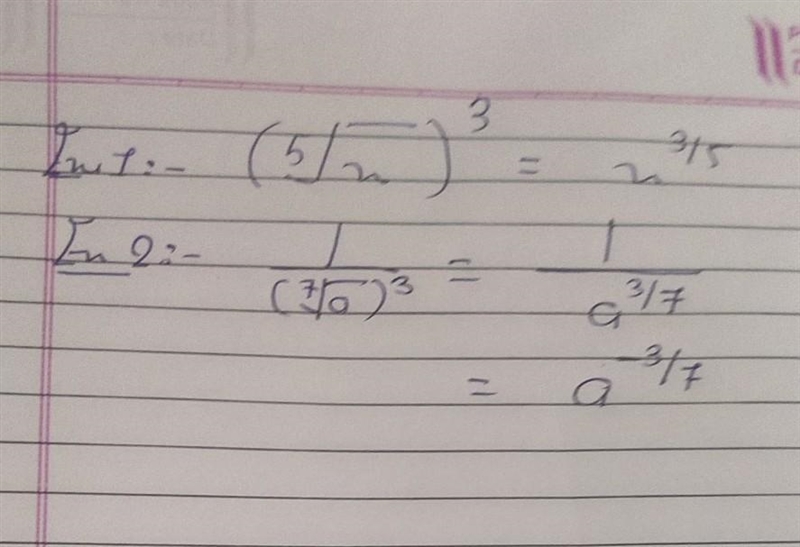 Ex 1:- (⁵√x)³ = x^3/5
Ex 2:- 1/(⁷√a)³ = 1/a^3/7
= a^-3/7